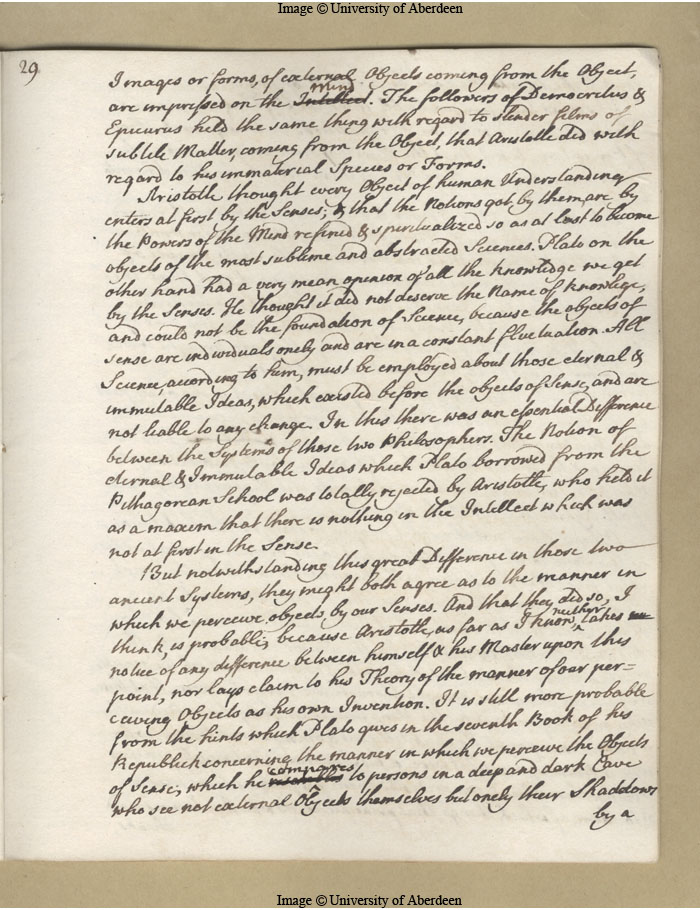 Image © University of Aberdeen
29
Images or forms, of external Objects coming from the Object,
Mind
are impressed on the Intellect. The followers of Democritus &
Epicurus held the same thing with regard to slender films of
subtile Matter, coming from the Object, that Aristotle did with
regard to his immaterial Species or Forms.
Aristotle thought every Object of human Understanding
enters at first by the Senses; & that the Notions got by them, are by
the Powers of the Mind refined & spiritualized so as at last to become
objects of the most sublime and abstracted Sciences. Plato on the
other hand had a very mean opinion of all the knowledge we get
by the Senses. He thought it did not deserve the Name of knowlege,
and could not be the foundation of Science, because the objects of
sense are individuals onely and are in a constant fluctuation. All
Science, according to him, must be employed about those eternal &
immutable Ideas, which existed before the objects of Sense, and are
not liable to any change. In this there was an essential Difference
between the Systems of those two Philosophers. The Notion of
eternal & Immutable Ideas which Plato borrowed from the
Pithagorean School was totally rejected by Aristotle, who held it
as a maxim that there is nothing in the Intellect which was
not at first in the Sense.
But notwithstanding this great Difference in those two
ancient Systems, they might both agree as to the manner in
which we perceive objects by our Senses. And that they did so, I
neither
think, is probable; because Aristotle, as far as I know, takes
notice of any difference between himself & his Master upon this
point, nor lays claim to his Theory of the manner of our per=
ceiving Objects as his own Invention. It is still more probable
from the hints which Plato gives in the seventh Book of his
Republick concerning the manner in which we perceive the Objects
compares
of Sense; which he resembles to persons in a deep and dark Cave
who see not external Objects themselves but onely their Shaddows
by a
Image © University of Aberdeen